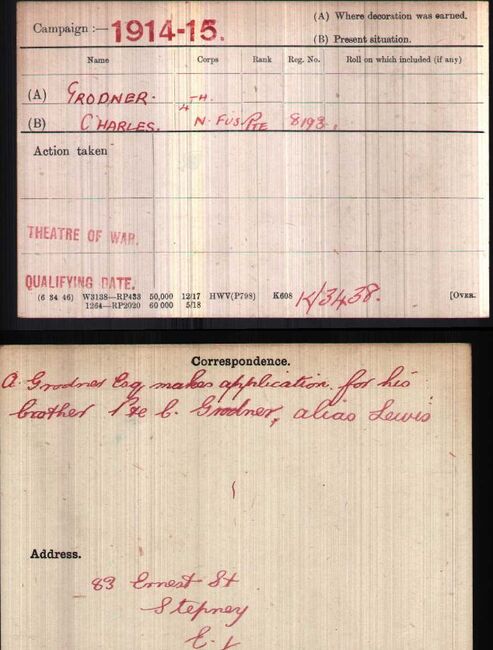 Campaign :— 1914-15.
(A) Where decoration was earned.
(B) Present situation.
Name Corps Rank Reg. No. Roll on which included (if any)
(A) GRODNER. 4TH.
(B) CHARLES. N. FUS. PTE 8193.
Action taken
THEATRE OF WAR.
QUALIFYING DATE.
(6 34 46) W3138—RP433 50,000 12/17 HWV(P798) K608 K/3438. [OVER.
1264—RP2020 60 000 5/18
Correspondence.
A. Grodner Esq makes application for his
brother Pte C. Grodner, alias Lewis
Address.
83 Ernest St
Stepney
E. 1